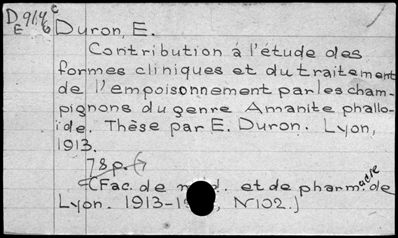 D 914 c
E 6
Duron, E.
Contribution à l'étude des
formes cliniques et du traitement
de l'empoisonnement par les cham-
pignons du genre Amanite phallo-
ide. Thèse par E. Duron. Lyon,
1913.
78 p.
(Fac. de et de pharmacie de
Lyon. 1913- , N°102.)